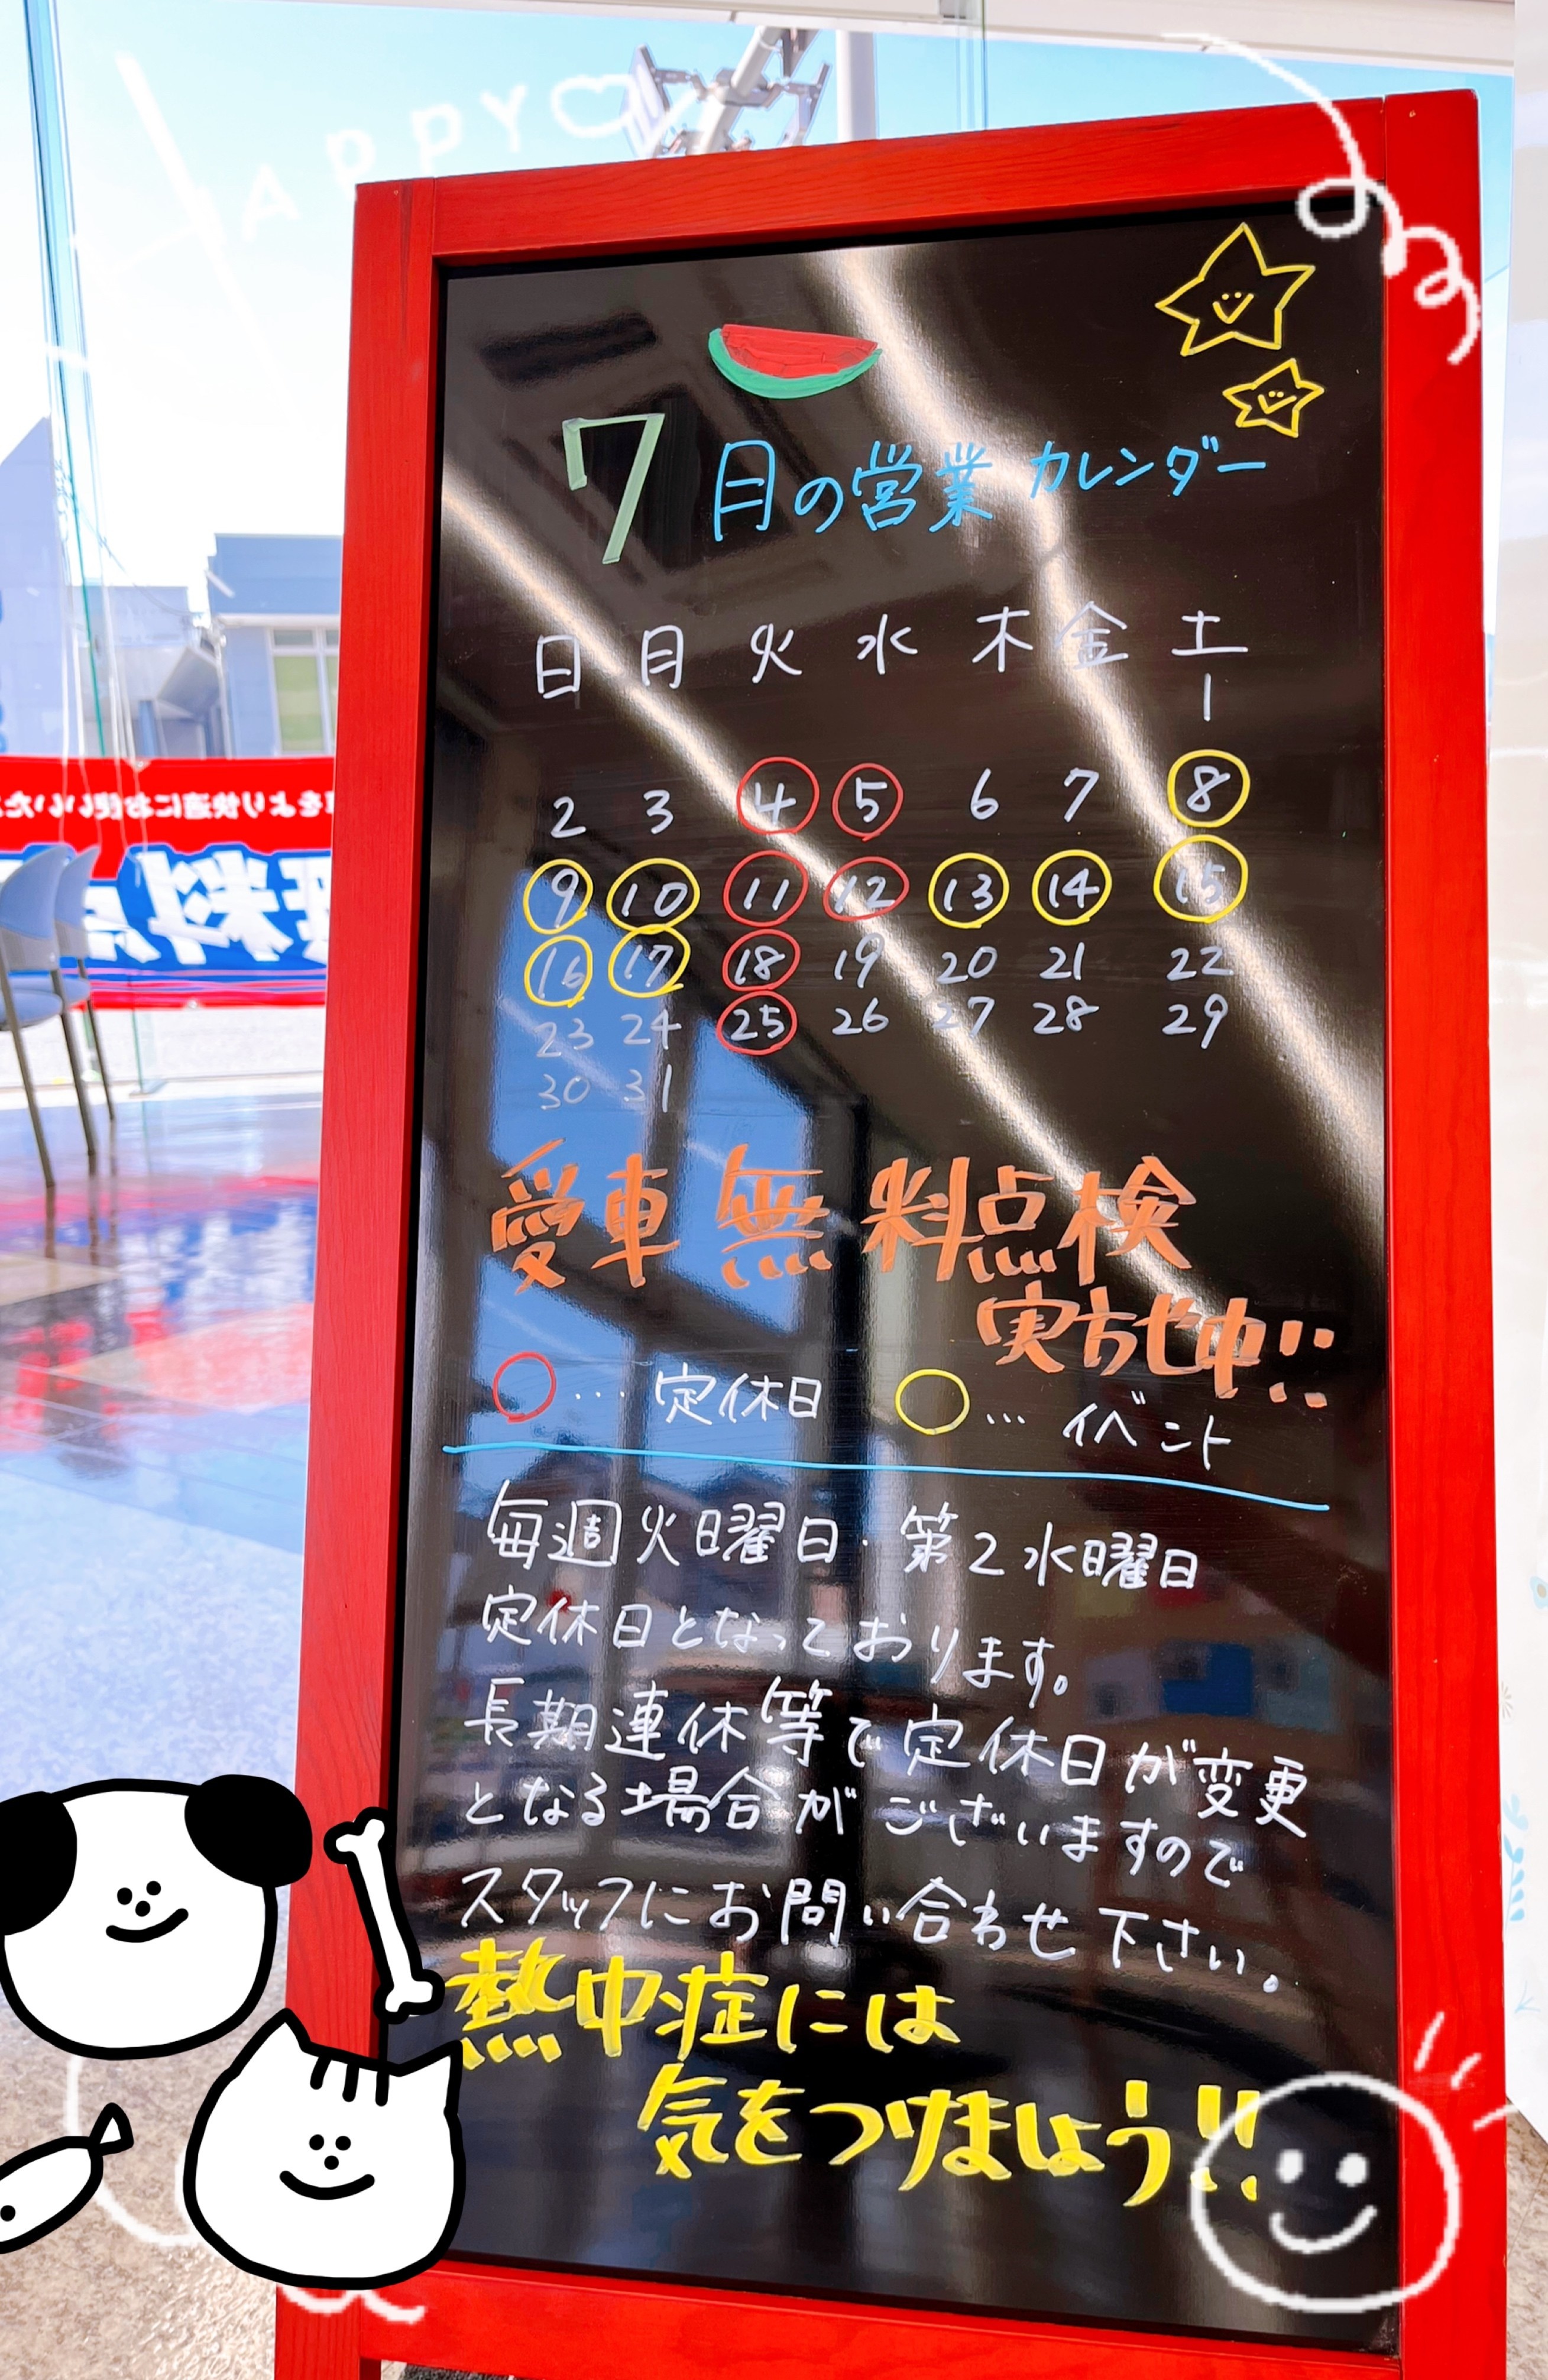 HAPPY♡
7月の営業カレンダー
日 月 火 水 木 金 土
1
2 3 4 5 6 7 8
9 10 11 12 13 14 15
16 17 18 19 20 21 22
23 24 25 26 27 28 29
30 31
愛車無料点検
実施中!!
○… 定休日 ○… イベント
毎週火曜日・第2水曜日
定休日となっております。
長期連休等で定休日が変更
となる場合がございますので
スタッフにお問い合わせ下さい。
熱中症には
気をつけましょう!!
をより快適にお使いいた
無料点